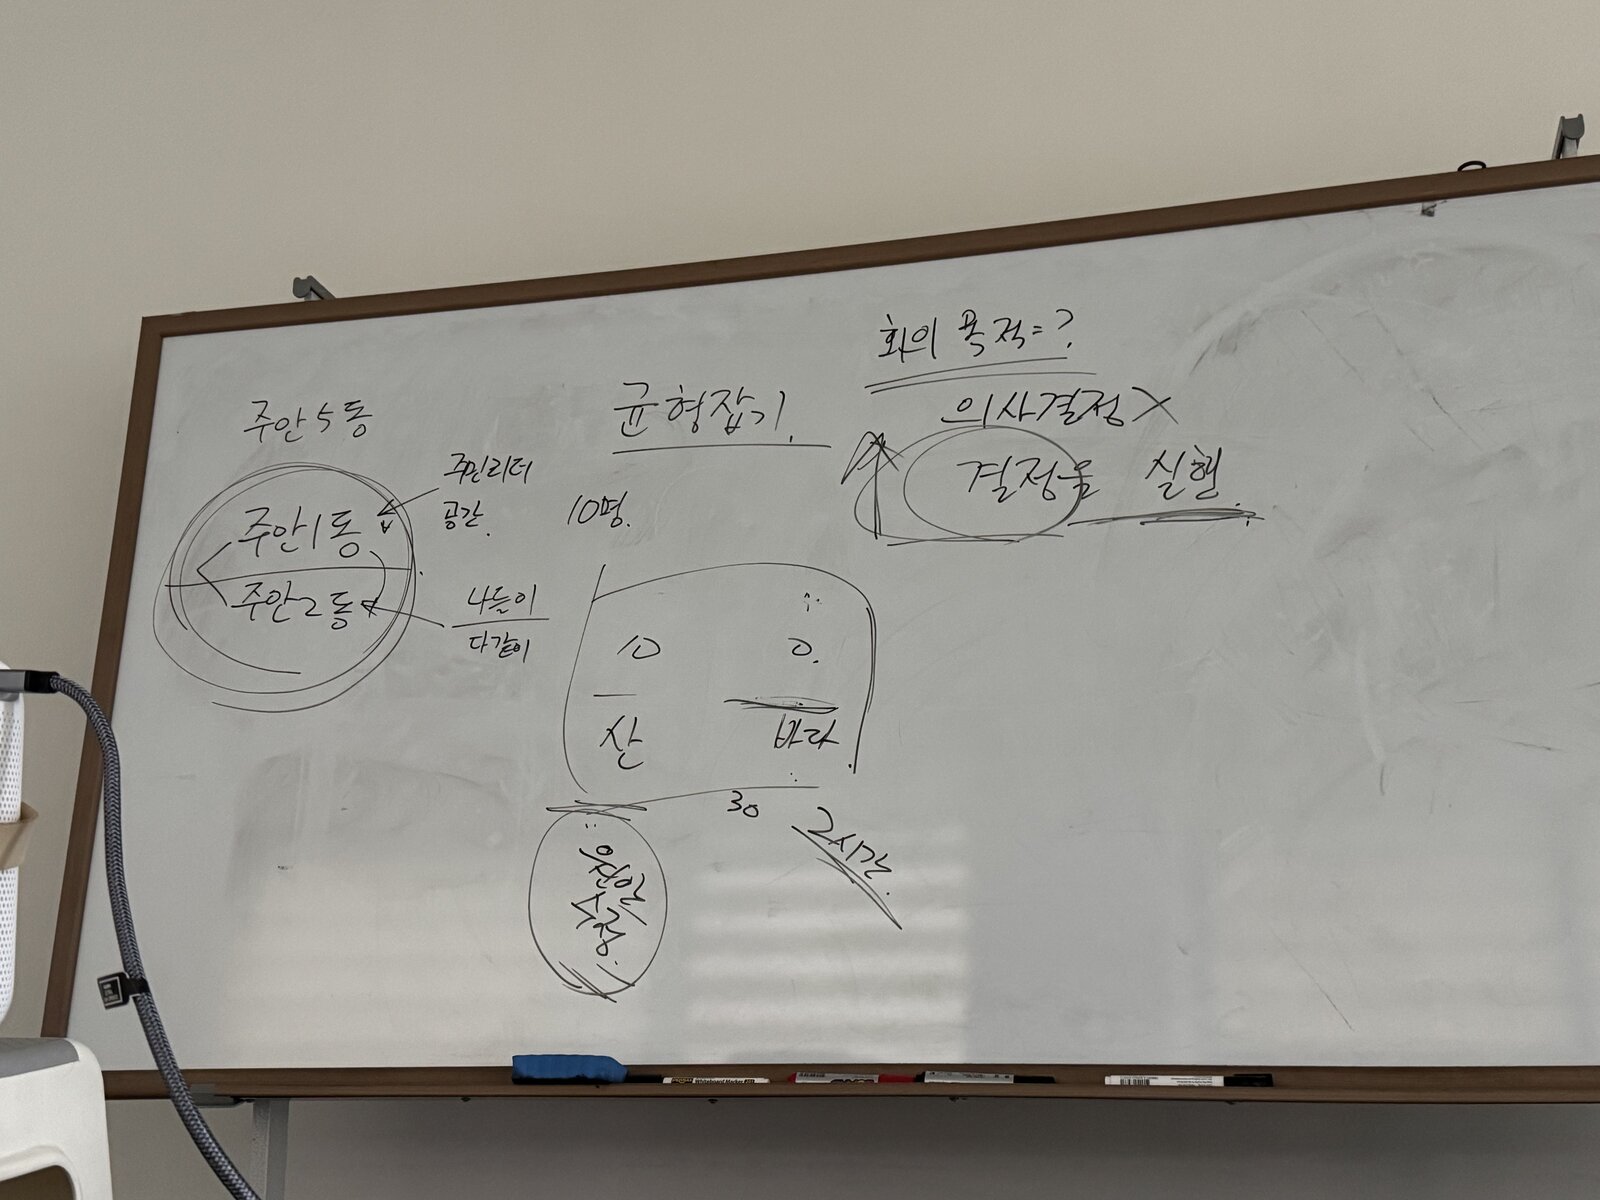 주안5동
주안1동
주안2동
주민리더
공간.
나들이
다같이
균형잡기.
10명.
10
0.
산
바다
30
2시간.
회의 목적=?
의사결정X
결정을 실현.